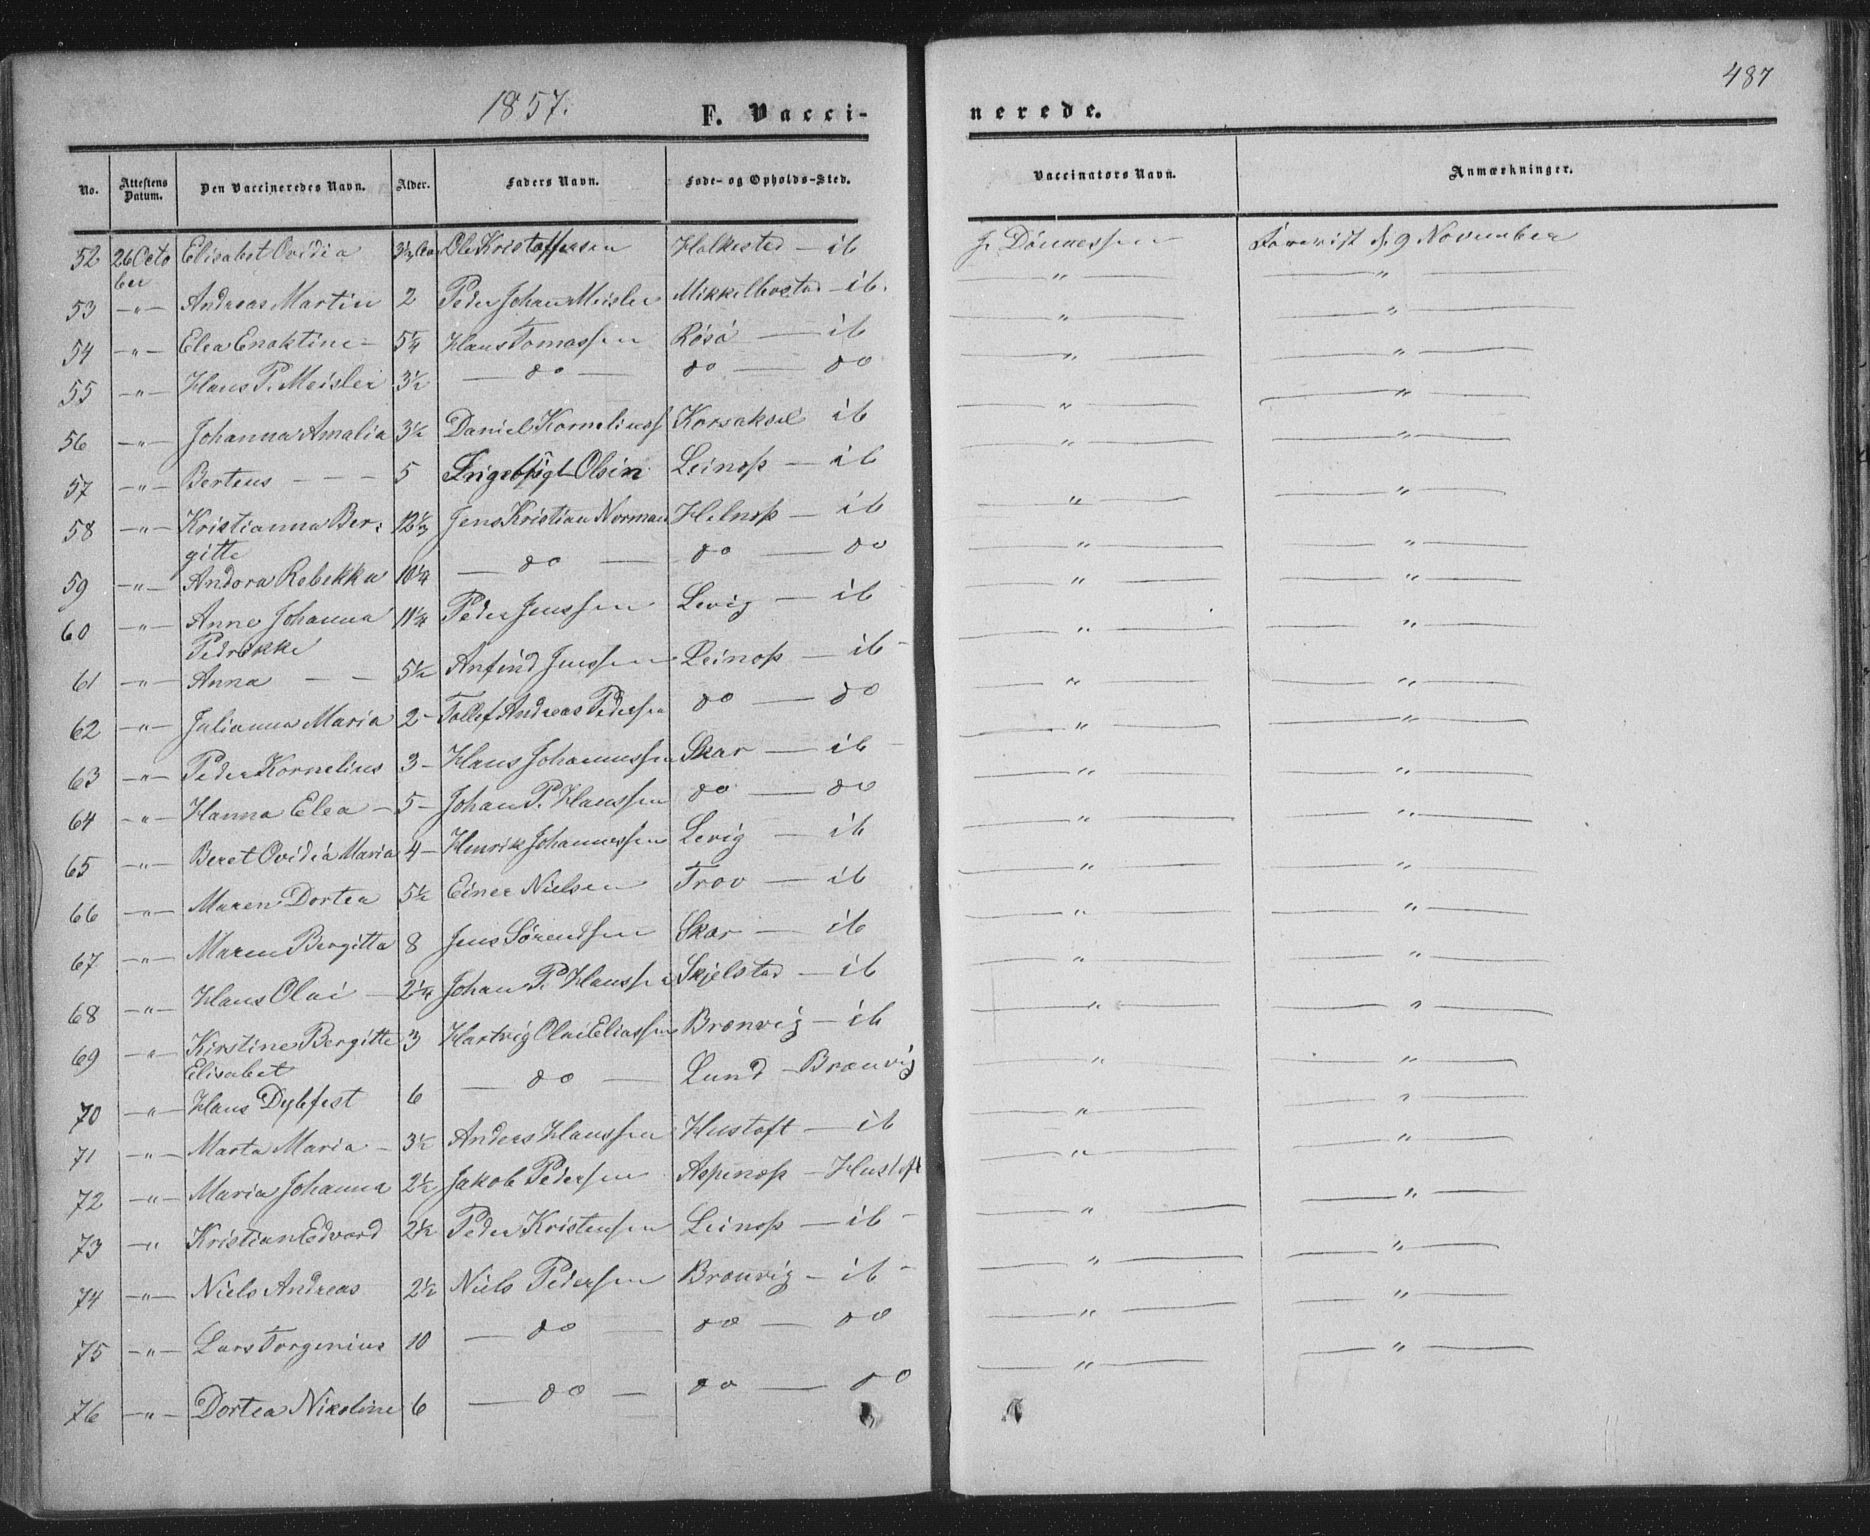 1857.
F. Vacci-
nerede.
487
No. Attestens Datum. Den Vaccineredes Navn. Alder. Faders Navn. Føde- og Opholds-Sted. Vaccinatørs Navn. Anmærkninger.
52 26 Octo ber Elisabet Ovidia 3½ Ole Kristoffersen Halkested — ib J. Dønnessen Forevist d. 9 November
53 —"— Andreas Martin 2 Peder Johan Meisler Mikkelbostad — ib. —"— —"—
54 —"— Elea Enoktine — 5¼ Hans Tomassen Røsø — ib —"— —"—
55 —"— Hans P. Meisler 3½ — do — do — do —"— —"—
56 —"— Johanna Amalia 3½ Daniel Korneliuss Korsaksel ib —"— —"—
57 —"— Berteus - - - 5 Olsen Leinoss — ib —"— —"—
58 —"— Kristianna Ber: gitte 12⅓ Jens Kristian Norman Helnoss — ib —"— —"—
59 —"— Andora Rebekka 10¼ — do — do — do —"— —"—
60 —"— Anne Johanna Pedrikke 11¼ Peder Jenssen Levig — ib —"— —"—
61 —"— Anna — — 5½ Anfind Jenssen Leinoss — ib —"— —"—
62 —"— Julianna Maria 2 - Tollef Andreas Pedersen do — do —"— —"—
63 —"— Peder Kornelius 3 - Hans Johannessen Skar — ib —"— —"—
64 —"— Hanna Elea — 5 - Johan P. Hanssen do — do —"— —"—
65 —"— Beret Ovidia Maria 4 - Henrik Johannessen Levig — ib —"— —"—
66 —"— Maren Dortea 5½ Einer Nielsen Trov — ib —"— —"—
67 —"— Maren Bergitta 8 Jens Sørendsen Skar — ib —"— —"—
68 —"— Hans Olai — 2¼ Johan P. Hanssen Skjelstad — ib —"— —"—
69 —"— Kirstine Bergitte Elisabet 3 Hartvig Olai Eliassen Brenvig — ib —"— —"—
70 —"— Hans Dybfest 6 — do — Lund — Brenvig —"— —"—
71 —"— Marta Maria - 3½ Anders Hanssen Hustoft — ib —"— —"—
72 —"— Maria Johanna 2½ Jakob Pedersen Aspenoss — Hustoft —"— —"—
73 —"— Kristian Edvard 2½ Peder Kristensen Leinoss — ib —"— —"—
74 —"— Niels Andreas 2½ Niels Pedersen Brenvig — ib —"— —"—
75 —"— Lars Torgenius 10 — do — do — do —"— —"—
76 —"— Dortea Nikoline 6 — do — do — do —"— —"—